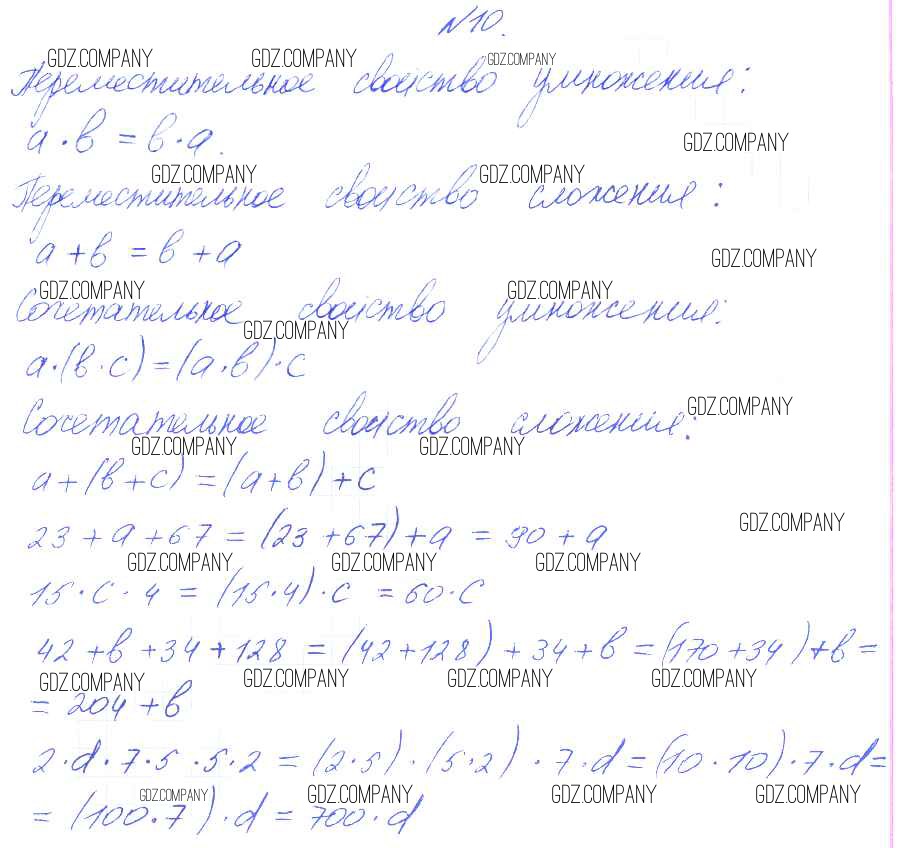 №10.
GDZ.COMPANY GDZ.COMPANY GDZ.COMPANY
Переместительное свойство умножения:
a · b = b · a.
GDZ.COMPANY
GDZ.COMPANY GDZ.COMPANY
Переместительное свойство сложения:
a + b = b + a
GDZ.COMPANY
GDZ.COMPANY GDZ.COMPANY
Сочетательное свойство умножения:
GDZ.COMPANY
a · (b · c) = (a · b) · c
GDZ.COMPANY
Сочетательное свойство сложения:
GDZ.COMPANY GDZ.COMPANY
a + (b + c) = (a + b) + c
GDZ.COMPANY
23 + a + 67 = (23 + 67) + a = 90 + a
GDZ.COMPANY GDZ.COMPANY GDZ.COMPANY
15 · c · 4 = (15 · 4) · c = 60 · c
42 + b + 34 + 128 = (42 + 128) + 34 + b = (170 + 34) + b =
GDZ.COMPANY GDZ.COMPANY GDZ.COMPANY GDZ.COMPANY
= 204 + b
2 · d · 7 · 5 · 5 · 2 = (2 · 5) · (5 · 2) · 7 · d = (10 · 10) · 7 · d =
GDZ.COMPANY GDZ.COMPANY GDZ.COMPANY GDZ.COMPANY
= (100 · 7) · d = 700 · d